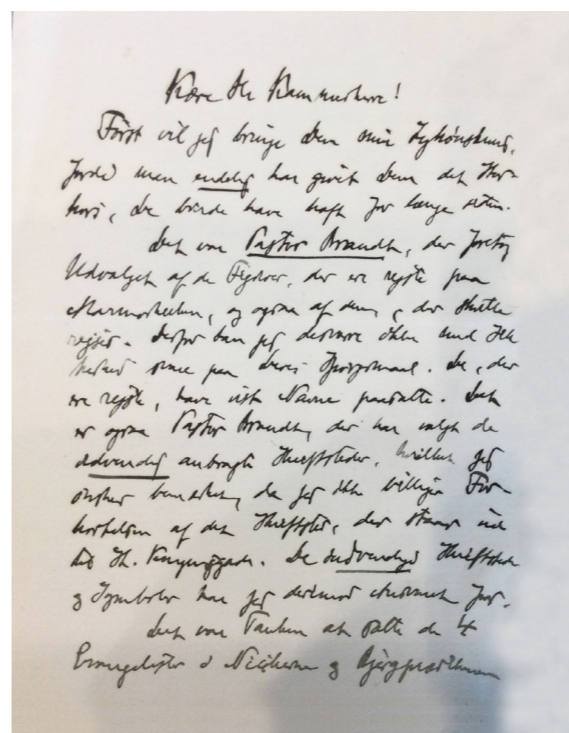 Kære Hr Kammerherre!
Først vil jeg bringe Dem min Lykønskning,
fordi man endelig har givet Dem det Stor-
kors, De burde have haft for længe siden.
Det var Pastor Brandt, der foretog
Udvalget af de Figurer, der ere rejste paa
Marmorkirken, og ogsaa af dem, der skulle
rejses. Derfor kan jeg desværre ikke med
svare paa Deres Spørgsmaal. De, der
ere rejste, have vist Navne paasatte. Det
er ogsaa Pastor Brandt, der har valgt de
udvendig anbragte Skriftsteder, hvilket jeg
ønsker bemærket, da jeg ikke billiger For-
kortelsen af det Skriftsted, der staar ud
til St. Kongensgade. De indvendige Skriftsteder
og Symboler har jeg derimod Ansvaret for.
Det var Tanken at sætte de 4
Evangelister i Nicherne og Bjergprædikenen